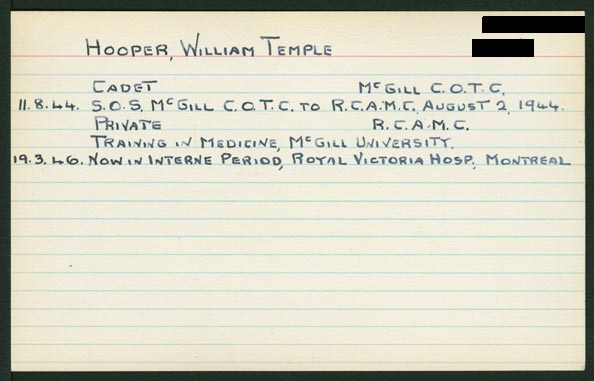 HOOPER, WILLIAM TEMPLE
CADET McGILL C.O.T.C.
11.8.44. S.O.S. McGILL C.O.T.C. TO R.C.A.M.C. AUGUST 2, 1944.
PRIVATE R.C.A.M.C.
TRAINING IN MEDICINE, McGILL UNIVERSITY.
19.3.46. NOW IN INTERNE PERIOD, ROYAL VICTORIA HOSP. MONTREAL